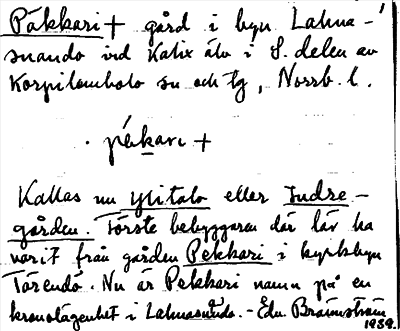 Päkkari + gård i byn Lahna-
suando vid Kalix älv i S. delen av
Korpilombolo sn och tg, Norrb. l.
pékari +
Kallas nu Ylitalo eller Indre-
gården. Förste bebyggaren där lär ha
varit från gården Pekkari i kyrkbyn
Tärendö. Nu är Pekkari namn på en
kronolägenhet i Lahnasuando. - Edv. Brännström
1939.